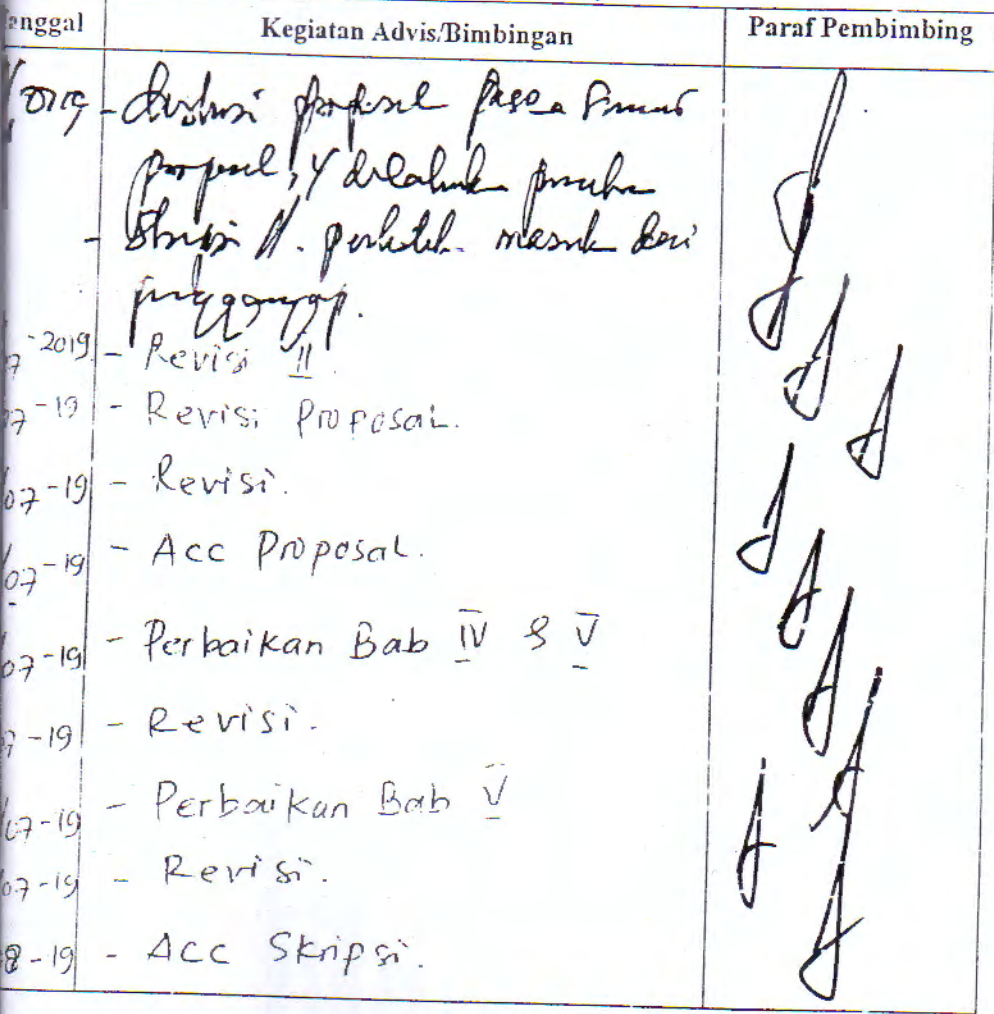 anggal Kegiatan Advis/Bimbingan Paraf Pembimbing
proposal
proposal, dilakukan
masuk dari
7-2019 - Revisi II
07-19 - Revisi Proposal.
07-19 - Revisi.
07-19 - Acc Proposal.
07-19 - Perbaikan Bab IV & V
7-19 - Revisi.
07-19 - Perbaikan Bab V
07-19 - Revisi.
8-19 - Acc Skripsi.